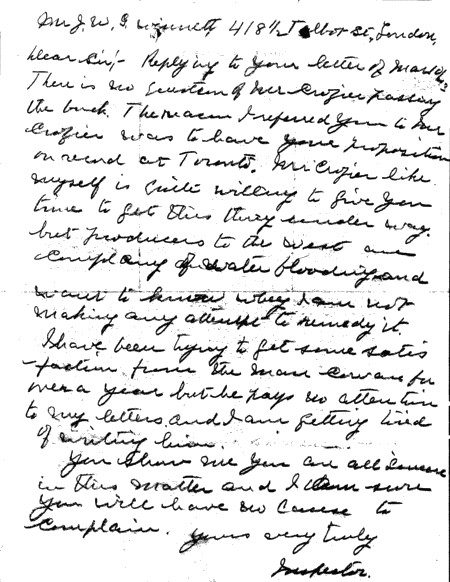 Mr J. W. G. Winnett 418½ Talbot St., London,
Dear Sir;- Replying to your letter of
There is no question of Mr Crozier passing
the buck. The reason I referred you to Mr
Crozier was to have your proposition
on record at Toronto. Mr Crozier like
myself is quite willing to give you
time to get this thing under way.
but producers to the west are
complaing of water flooding and
want to know why I am not
making any attempt to remedy it.
I have been trying to get some satis
faction from the man Cowan for
over a year but he pays no attention
to my letters and I am getting tired
of writing him.
You show me you are all
in this matter and I am sure
you will have no cause to
complain. Yours very truly
Inspector.